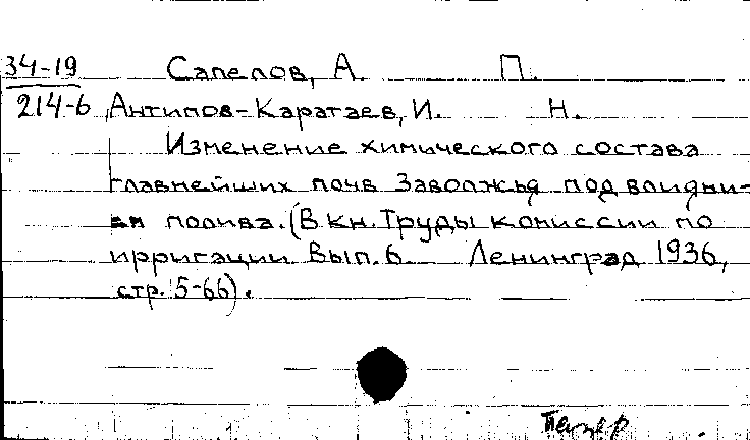 34-19 Сапелов, А. П.
214-6 Антипов-Каратаев, И. Н.
Изменение химического состава
главнейших почв Заволжья под влияни-
ем полива. (В кн. Труды комиссии по
ирригации Вып. 6. Ленинград 1936,
стр. 5-66).